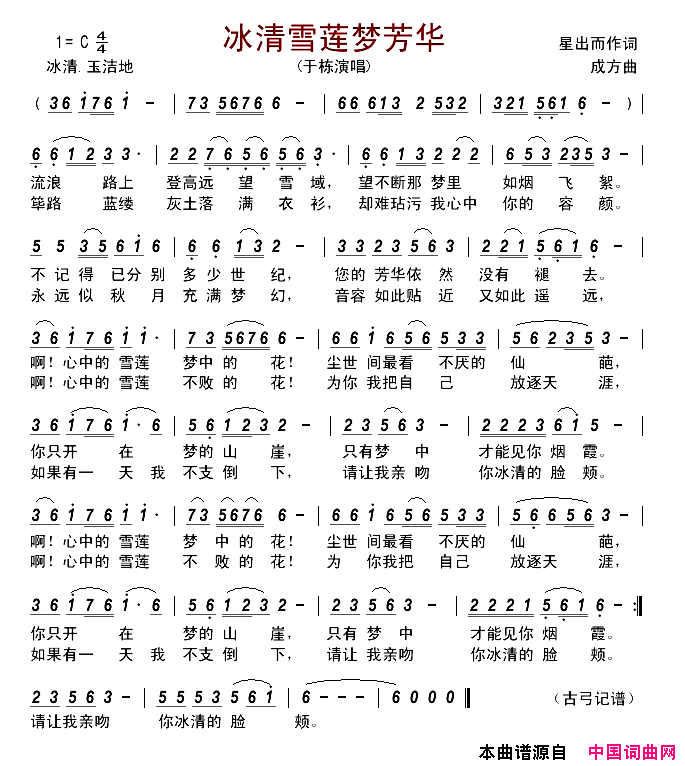 冰清雪莲梦芳华
1=C 4/4
星出而作词
冰清.玉洁地
(于栋演唱)
成方曲
( 3 6 1 7 6 1 - | 7 3 5 6 7 6 6 - | 6 6 6 1 3 2 5 3 2 | 3 2 1 5 6 1 6 - ) |
6 6 1 2 3 3· | 2 2 7 6 5 6 5 6 3· | 6 6 1 2 3 2 2 2 | 6 5 3 2 3 5 3 - |
流浪 路上 登高远 望 雪 域, 望不断那 梦里 如烟 飞 絮。
筚路 蓝缕 灰土落 满 衣 衫, 却难玷污 我心中 你的 容 颜。
5 5 3 5 6 1 6 | 6 6 6 1 3 2 - | 2 2 3 2 3 5 6 3 | 2 2 2 1 5 6 1 6 - |
不 记 得 已分别 多 少 世 纪, 您的 芳华依 然 没有 褪 去。
永 远 似 秋 月 充 满 梦 幻, 音容 如此贴 近 又如此 遥 远,
3 6 1 7 6 1 1· | 7 3 5 6 7 6 6 - | 6 6 1 6 5 6 5 3 3 | 5 6 2 3 5 3 - |
啊! 心中的 雪莲 梦中 的 花! 尘世 间最看 不厌的 仙 葩,
啊! 心中的 雪莲 不败 的 花! 为你 我把自 己 放逐天 涯,
3 6 1 7 6 1· 6 | 5 6 1 2 3 2 - | 2 3 5 6 3 - | 2 2 2 3 6 1 5 - |
你只开 在 梦的 山 崖, 只有梦 中 才能见你 烟霞。
如果有一 天我 不支 倒 下, 请让我亲 吻 你冰清的 脸 颊。
3 6 1 7 6 1 1· | 7 3 5 6 7 6 6 - | 6 6 1 6 5 6 5 5 3 | 5 6 6 5 6 3 - |
啊! 心中的 雪莲 梦 中的 花! 尘世 间最看 不厌的 仙 葩,
啊! 心中的 雪莲 不 败 的 花! 为 你我把 自己 放逐天 涯,
3 6 1 7 6 1· 6 | 5 6 1 2 3 2 - | 2 3 5 6 3 - | 2 2 2 1 5 6 1 6 - :||
你只开 在 梦的 山 崖, 只有 梦 中 才能见你 烟 霞。
如果有一 天 我 不支 倒 下, 请让 我亲吻 你冰清的 脸 颊。
2 3 5 6 3 - | 5 5 5 3 5 6 1 | 6 - - - | 6 0 0 0 ||
(古弓记谱)
请让我亲吻 你冰清的 脸 颊。
本曲谱源自 中国词曲网